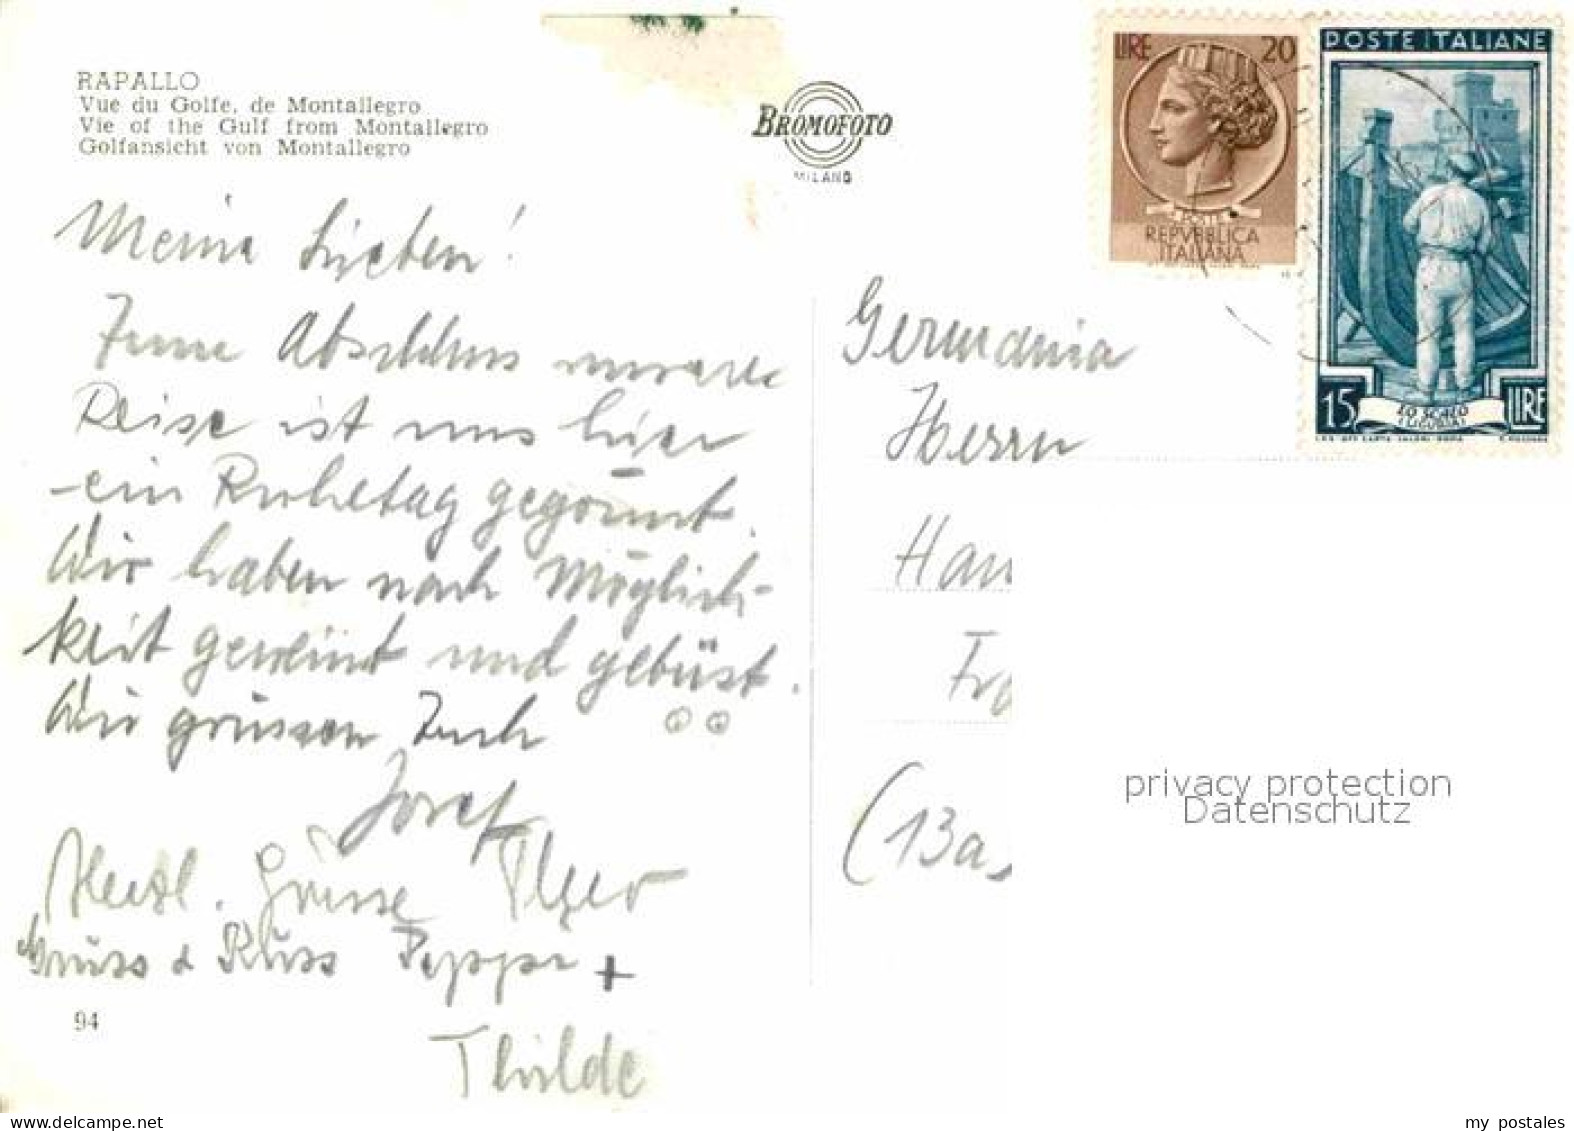 RAPALLO
Vue du Golfe, de Montallegro
Vie of the Gulf from Montallegro
Golfansicht von Montallegro
BROMOFOTO
MILANO
LIRE 20
POSTE
REPVBBLICA
ITALIANA
POSTE ITALIANE
15 LIRE
LO SCALO
(LIGURIA)
Meine Lieben!
Zum Abschluss unserer
Reise ist uns hier
ein Ruhetag gegönnt.
Wir haben nach Möglich-
keit geweint und gebüst.
Wir grüssen Euch
Josef
Herzl. Grüsse
Gruss & Kuss Peppi +
Thilde
94
Germania
Herrn
Han
Fra
(13a
privacy protection
Datenschutz
www.delcampe.net
my postales